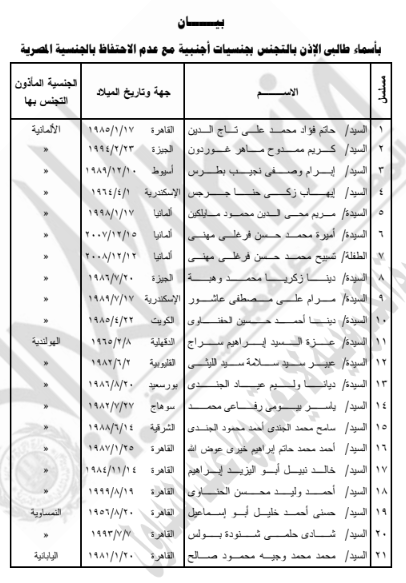 بيـــــــان
بأسماء طالبى الإذن بالتجنس بجنسيات أجنبية مع عدم الاحتفاظ بالجنسية المصرية
مسلسل الاســـــم جهة وتاريخ الميلاد الجنسية المأذون التجنس بها
١ السيد/ حاتم فؤاد محمد على تاج الدين القاهرة ١٩٨٥/١/١٧ الألمانية
٢ السيد/ كريم ممدوح ماهر غوردون الجيزة ١٩٩٤/٢/٢٣ »
٣ السيد/ إبرام وصفى نجيب بطرس أسيوط ١٩٨٩/١٢/١٠ »
٤ السيد/ إيهاب زكى حنا جرجس الإسكندرية ١٩٦٤/٤/١ »
٥ السيدة/ مريم محى الدين محمود مايلكين ألمانيا ١٩٩٨/١/١٧ »
٦ السيدة/ أميرة محمد حسن فرغلى مهنى ألمانيا ٢٠٠٧/١٢/١٥ »
٧ الطفلة/ تسبيح محمد حسن فرغلى مهنى ألمانيا ٢٠٠٨/١٢/١٢ »
٨ السيدة/ دينا زكريا محمد وهبة الجيزة ١٩٨٦/٧/٢٠ »
٩ السيدة/ مرام على مصطفى عاشور الإسكندرية ١٩٨٩/٧/١٧ »
١٠ السيدة/ دينا أحمد حسين الحفناوى الكويت ١٩٨٥/٤/٢٢ »
١١ السيدة/ عزة السيد إبراهيم سراج الدقهلية ١٩٦٥/٢/٨ الهولندية
١٢ السيدة/ عبير سيد سلامة سيد الليثى القليوبية ١٩٨٢/٦/٢ »
١٣ السيدة/ ديانا وليم عياد الجندى بورسعيد ١٩٨٦/٨/٢٠ »
١٤ السيد/ ياسر بيومى رفاعى محمد سوهاج ١٩٨٢/٧/٢٧ »
١٥ السيد/ سامح محمد الجندى أحمد محمود الجندى الشرقية ١٩٨٨/٦/١٤ »
١٦ السيد/ أحمد محمد حاتم إبراهيم خيرى عوض الله القاهرة ١٩٨٧/١/٢٥ »
١٧ السيد/ خالد نبيل أبو اليزيد إبراهيم القاهرة ١٩٨٤/١١/١٤ »
١٨ السيد/ أحمد وليد محسن الحناوى القاهرة ١٩٩٩/٨/١٩ »
١٩ السيد/ حسنى أحمد خليل أبو إسماعيل القاهرة ١٩٥٦/٨/٢٠ النمساوية
٢٠ السيد/ شادى حلمى شنودة بولس القاهرة ١٩٩٣/٧/٧ »
٢١ السيد/ محمد محمد وجيه محمود صالح القاهرة ١٩٨١/١/٢٠ اليابانية